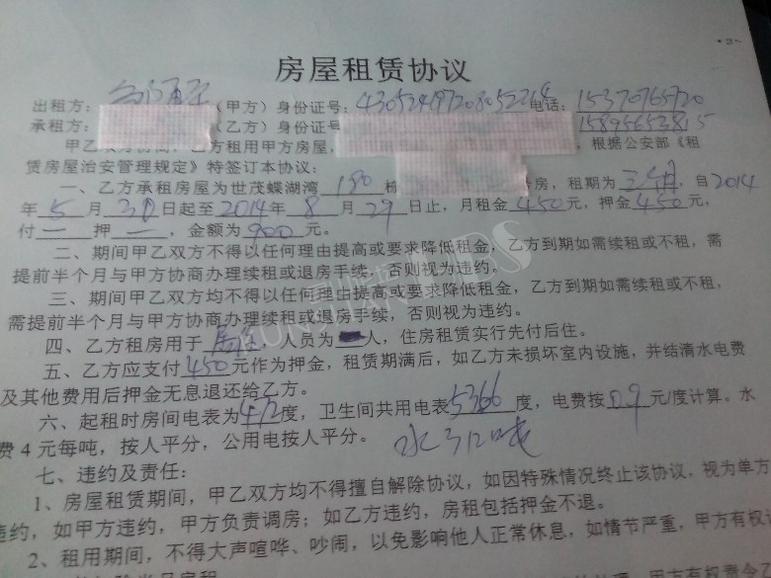 房屋租赁协议
出租方： （甲方）身份证号： 电话：15370765720
承租方： （乙方）身份证号 15895653815
甲乙双方协商，乙方租用甲方房屋， ，根据公安部《租
赁房屋治安管理规定》特签订本协议：
一、乙方承租房屋为世茂蝶湖湾 180 栋 房，租期为 三个月，自 2014
年 5 月 30 日起至 2014 年 8 月 29 日止，月租金 450 元，押金 450 元，
付 一 押 一 ，金额为 900 元。
二、期间甲乙双方不得以任何理由提高或要求降低租金，乙方到期如需续租或不租，需
提前半个月与甲方协商办理续租或退房手续，否则视为违约。
三、期间甲乙双方均不得以任何理由提高或要求降低租金，乙方到期如需续租或不租，
需提前半个月与甲方协商办理续租或退房手续，否则视为违约。
四、乙方租房用于 居住，人员为 人，住房租赁实行先付后住。
五、乙方应支付 450 元作为押金，租赁期满后，如乙方未损坏室内设施，并结清水电费
及其他费用后押金无息退还给乙方。
六、起租时房间电表为 412 度，卫生间共用电表 5366 度，电费按 0.9 元/度计算。水
费 4 元每吨，按人平分，公用电按人平分。 水312吨
七、违约及责任：
1、房屋租赁期间，甲乙双方均不得擅自解除协议，如因特殊情况终止该协议，视为单方
违约，如甲方违约，甲方负责调房；如乙方违约，房租包括押金不退。
2、租用期间，不得大声喧哗、吵闹，以免影响他人正常休息，如情节严重，甲方有权